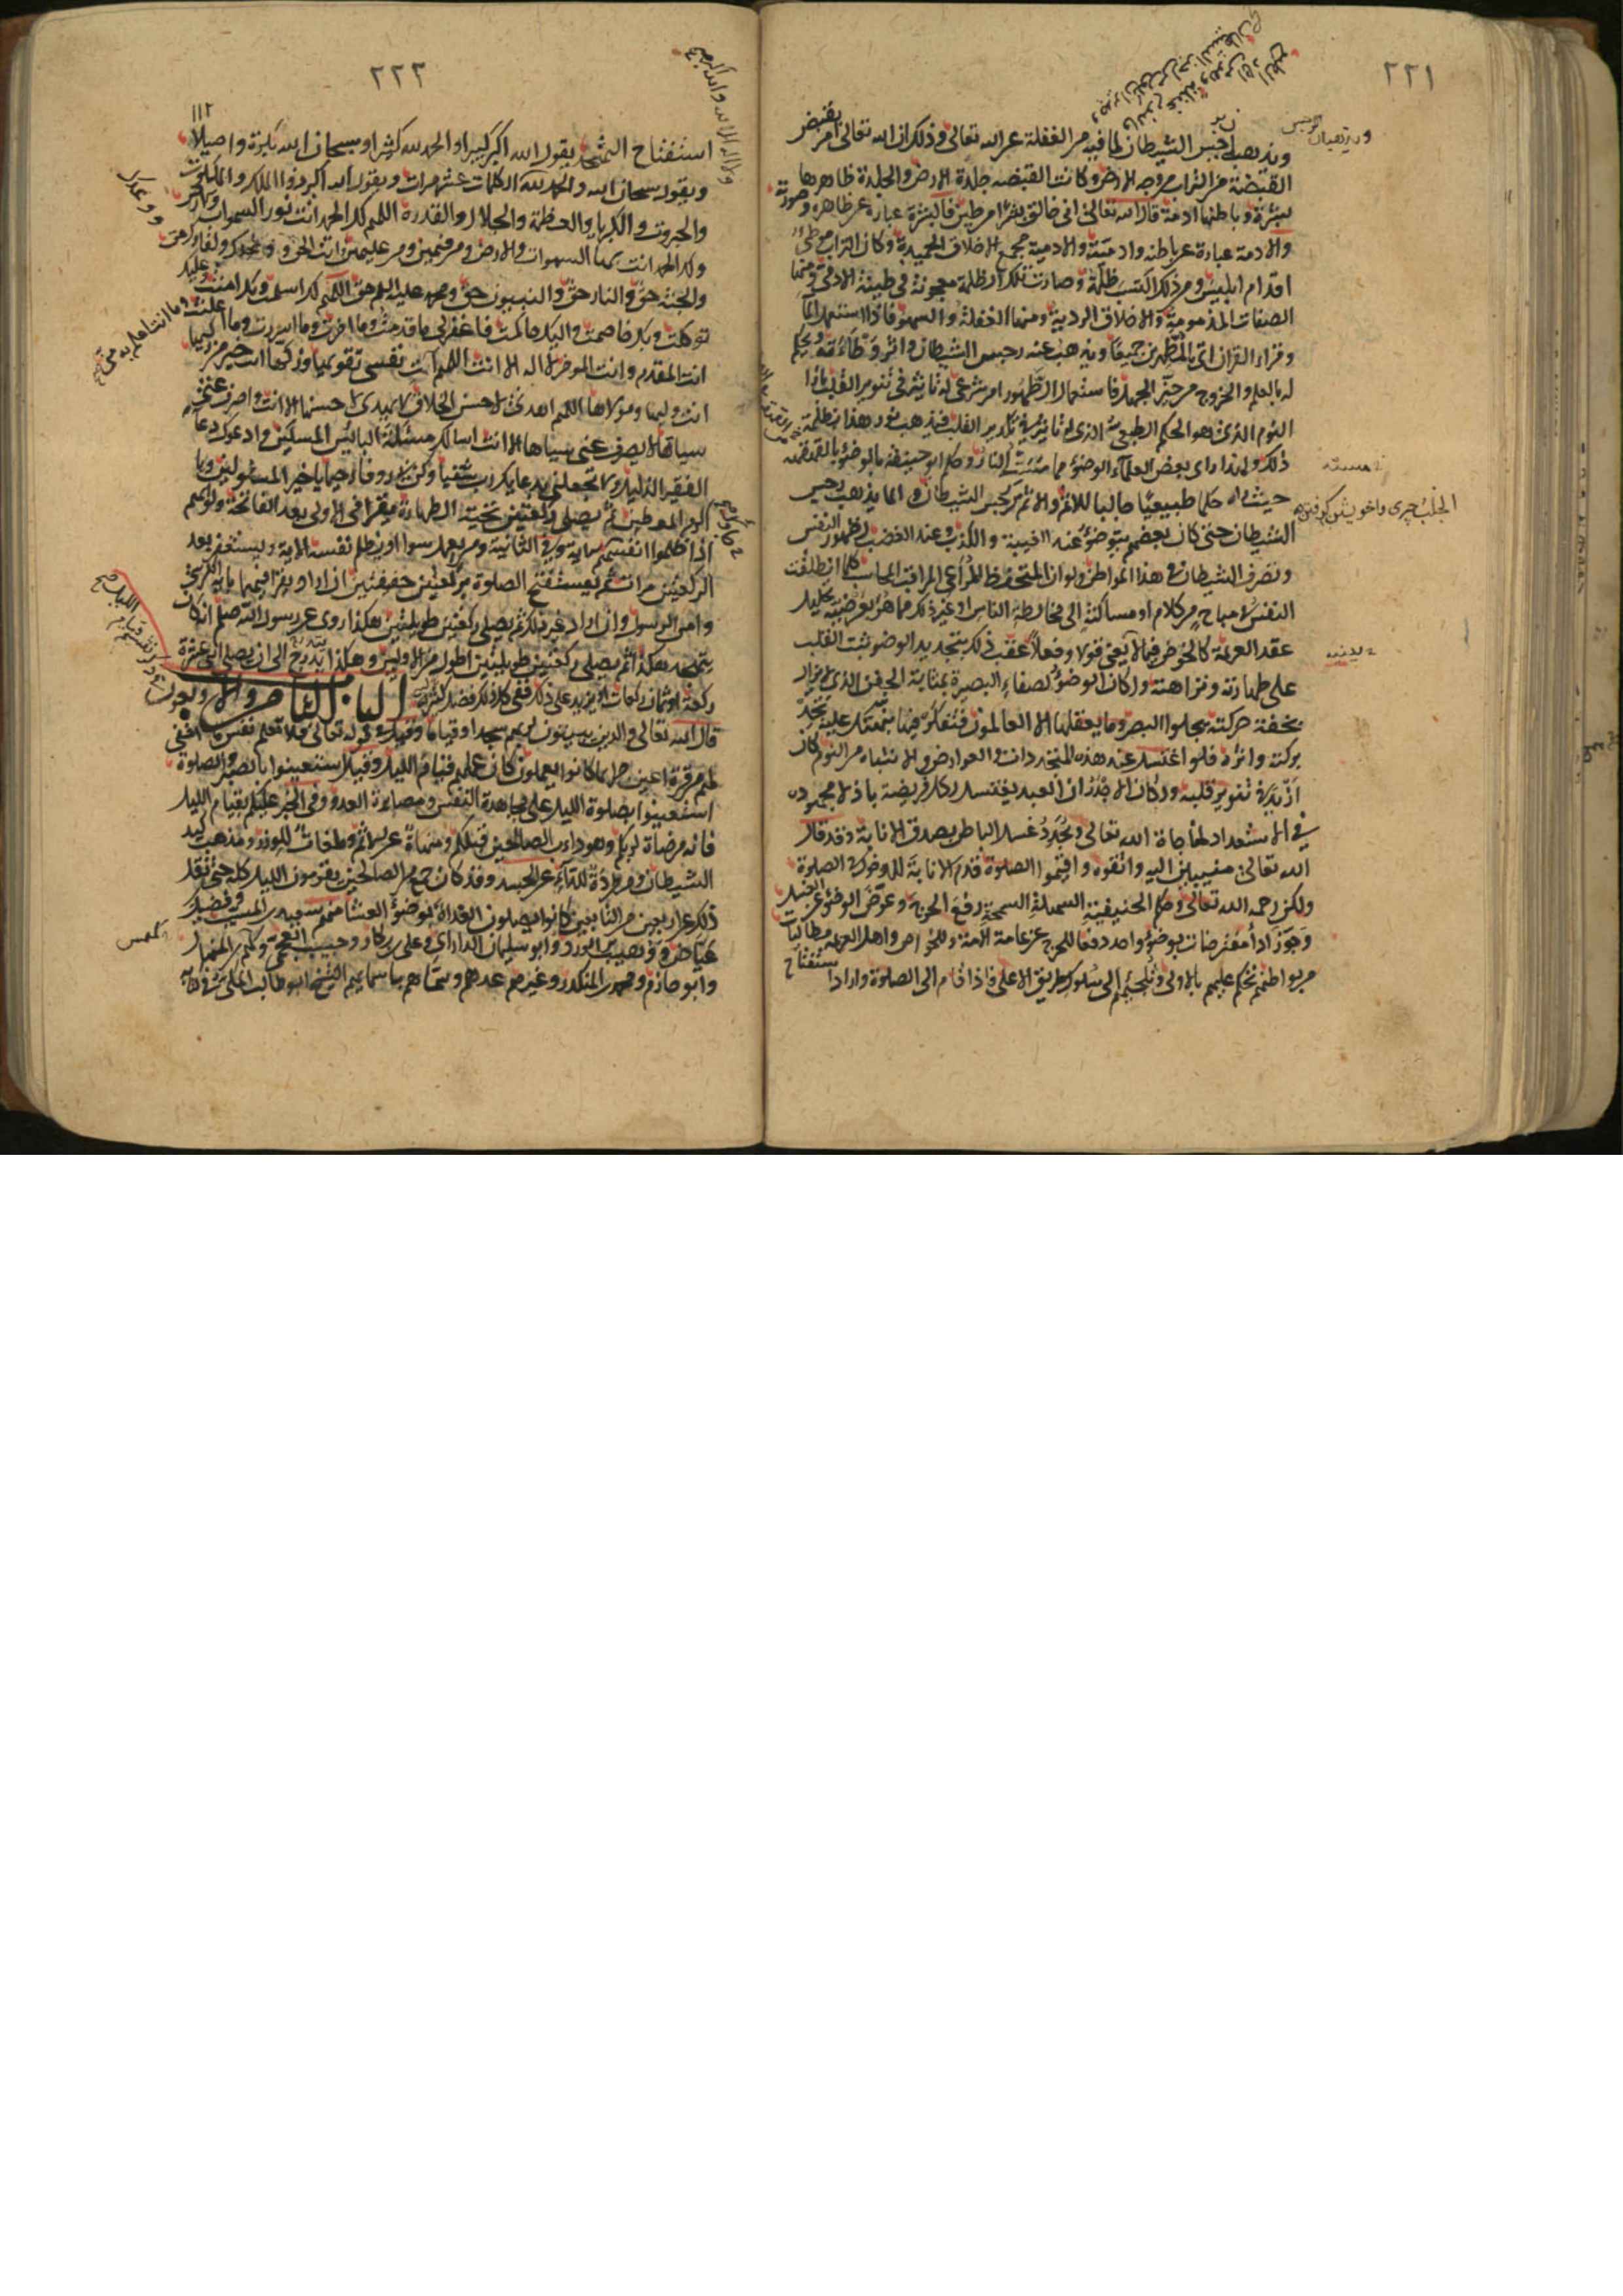 ٢٢١
ويذهب رجس الشيطان لما فيه من الغفلة عن الله تعالى وذلك ان الله تعالى امر بقبض
القبضة من التراب من وجه الارض وكانت القبضه جلدة الارض والجلدة ظاهرها
بشرة وباطنها ادمة قال الله تعالى انى خالق بشرا من طين فالبشرة عبارة عن ظاهره وصورته
والادمة عبارة عن باطنه وادميته والادمية مجمع الاخلاق الحميدة وكان التراب موطئ
اقدام ابليس ومن ذلك اكتسب ظلمة وصارت تلك الظلمة معجونة فى طينة الادمى ومنها
الصفات المذمومة والاخلاق الردية ومنها الغفلة والسهو فاذا استعمل الماء
وقراء القران اتى بالمطهرين جميعا ويذهب عنه رجس الشيطان واثر وطأته ويحكم
له بالعلم والخروج من حيز الجهل فاستعمال الطهور امر شرعى له تاثير فى تنوير القلب بازاء
النوم الذى هو الحكم الطبيعى الذى له تاثير فى تكدير القلب فيذهب نور هذا بظلمة
ذلك ولهذا راى بعض العلماء الوضوء مما مسّت النار وحكم ابو حنيفة بالوضوء بالقهقهة
حيث راه حكما طبيعيا جالبا للاثم والاثم رجس الشيطان والماء يذهب رجس
الشيطان حتى كان بعضهم يتوضؤ عند الغيبة والكذب وعند الغضب لظهور النفس
وتصرف الشيطان فى هذا المواطن ولو ان المتحفظ المراعى المراقب المحاسب كلما انطلقت
النفس فى مباح من كلام او مساكنة الى مخالطة الناس او غير ذلك مما هو بعرضية تحليل
عقد العزيمة كالخوض فيما لا يعنى قولا وفعلا عقب ذلك بتجديد الوضوء ثبت القلب
على طهارته ونزاهته ولكان الوضوء لصفاء البصيرة بمثابة الجفن الذى لا يزال
بخفة حركته يجلو البصر وما يعقلها الا العالمون فتفكر فيما نبهتك عليه تجد
بركته واثره فلو اغتسل عند هذه المتجددات العوارض والانتباه من النوم لكان
ازيد فى تنوير قلبه ولكان الاجدر ان العبد يغتسل لكل فريضة باذلا مجهوده
فى الاستعداد لمناجاة الله تعالى ويجدد غسل الباطن بصدق الانابة وقد قال
الله تعالى منيبين اليه واتقوه واقيموا الصلوة قدم الانابة للدخول فى الصلوة
ولكن رحمة الله تعالى وحكم الحنيفية السهلة السمحة رفع الحرج وعوض الوضوء عن الغسل
وجوز اداء مفترضات بوضوء واحد دفعا للحرج عن عامة الامة وللخواص واهل العزيمة مطالبات
من بواطنهم تحكم عليهم بالاولى وتلجئهم الى سلوك طريق الاعلى فاذا قام الى الصلوة واراد استفتاح
٢٢٢
١١٢
استفتاح التهجد يقول الله اكبر كبيرا والحمد لله كثيرا وسبحان الله بكرة واصيلا
ويقول سبحان الله والحمد لله الكلمات عشر مرات ويقول الله اكبر ذو الملك والملكوت
والجبروت والكبرياء والعظمة والجلال والقدرة اللهم لك الحمد انت نور السموات والارض
ولك الحمد انت بهاء السموات والارض ومن فيهن ومن عليهن انت الحق ووعدك حق ولقاؤك حق
والجنة حق والنار حق والنبيون حق ومحمد عليه السلم حق اللهم لك اسلمت وبك امنت وعليك
توكلت وبك خاصمت واليك حاكمت فاغفر لى ما قدمت وما اخرت وما اسررت وما اعلنت
انت المقدم وانت المؤخر لا اله الا انت اللهم آت نفسى تقويها وزكها انت خير من زكيها
انت وليها ومولاها اللهم اهدنى لاحسن الاخلاق لا يهدى لاحسنها الا انت واصرف عنى
سياتها لا يصرف عنى سياها الا انت اسالك مسئلة البائس المسكين وادعوك دعاء
الفقير الذليل ولا تجعلنى بدعائك رب شقيا وكن بى رؤوفا رحيما يا خير المسئولين ويا
اكرم المعطين ثم يصلى ركعتين تحية الطهارة يقرا فى الاولى بعد الفاتحة ولو انهم
اذ ظلموا انفسهم الاية وفى الثانية ومن يعمل سوءا او يظلم نفسه الاية ويستغفر بعد
الركعتين مرات ثم يستفتح الصلوة بركعتين خفيفتين ان اراد يقرا فيهما باية الكرسى
وامن الرسول وان اراد غير ذلك ثم يصلى ركعتين طويلتين هكذا روى عن رسول الله صلعم انه كان
يتهجد هكذا ثم يصلى ركعتين طويلتين اطول من الاوليين وهكذا يتدرج الى ان يصلى اثنى عشرة
ركعة او ثمان ركعات او يزيد على ذلك ففى كل ذلك فضل كثير الباب الثامن والاربعون
قال الله تعالى والذين يبيتون لربهم سجدا وقياما وقيل فى قوله تعالى فلا تعلم نفس ما اخفى
لهم من قرة اعين جزاء بما كانوا يعملون كان عملهم قيام الليل وقيل استعينوا بالصبر والصلوة
استعينوا بصلوة الليل على مجاهدة النفس ومصابرة العدو وفى الخبر عليكم بقيام الليل
فانه مرضاة لربكم وهو داب الصالحين قبلكم ومنهاة عن الاثم وملغات للوزر ومذهب كيد
الشيطان ومطردة للداء عن الجسد وقد كان جمع من الصالحين يقومون الليل كله حتى نقل
ذلك عن اربعين من التابعين كانوا يصلون الغداة بوضوء العشاء منهم سعيد بن المسيب وفضيل بن
عياض ووهيب بن الورد وابو سليمان الدارانى وعلى بن بكار وحبيب العجمى وكهمس بن المنهال
وابو حازم ومحمد بن المنكدر وغيرهم عدهم وسماهم باسمائهم الشيخ ابو طالب المكى فى كتابه